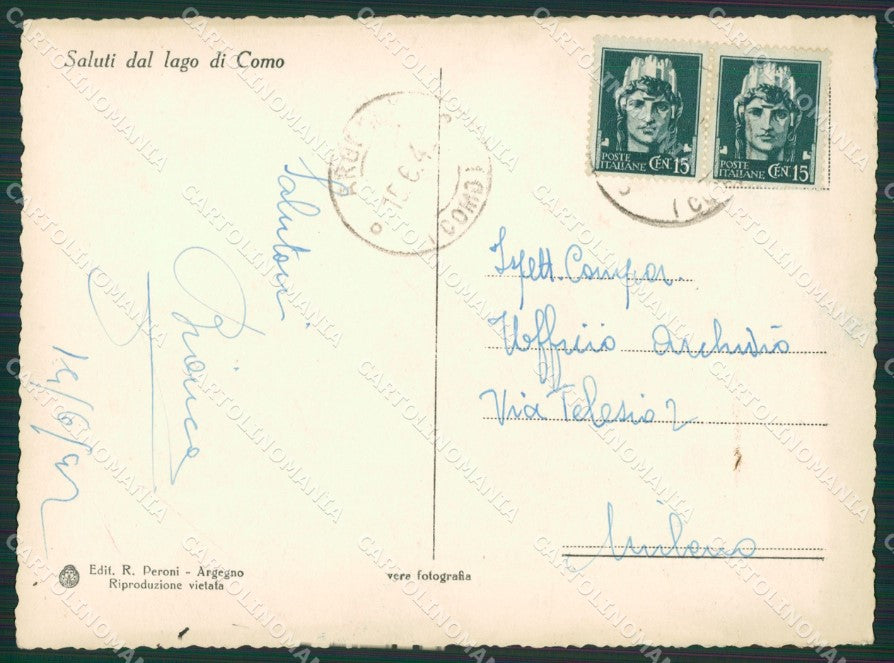 Saluti dal lago di Como
15.6.4
(COMO)
POSTE ITALIANE CENT 15
POSTE ITALIANE CENT 15
Saluton
14/6/42
Spett. Compar.
Ufficio Archivio
Via Telesio 2
Milano
Edit. R. Peroni - Argegno
Riproduzione vietata
vera fotografia
CARTOLINOMANIA